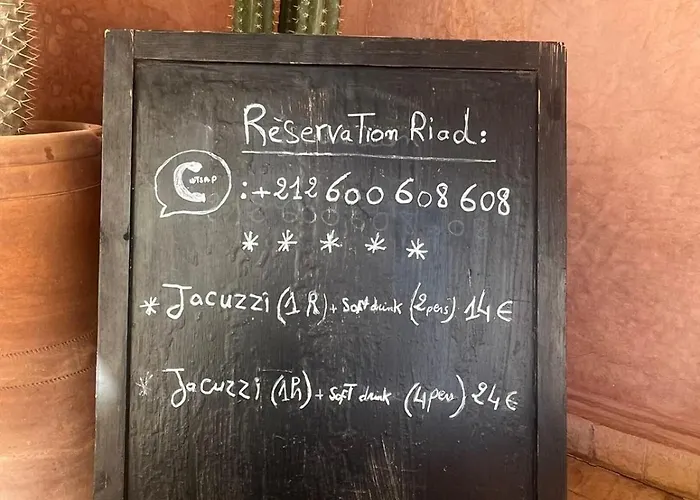 Rèservation Riad:
WTSAP :+212 600 608 608
* * * * *
* Jacuzzi (1 h) + Soft drink (2pers) 14€
* Jacuzzi (1h) + Soft drink (4pers) 24€